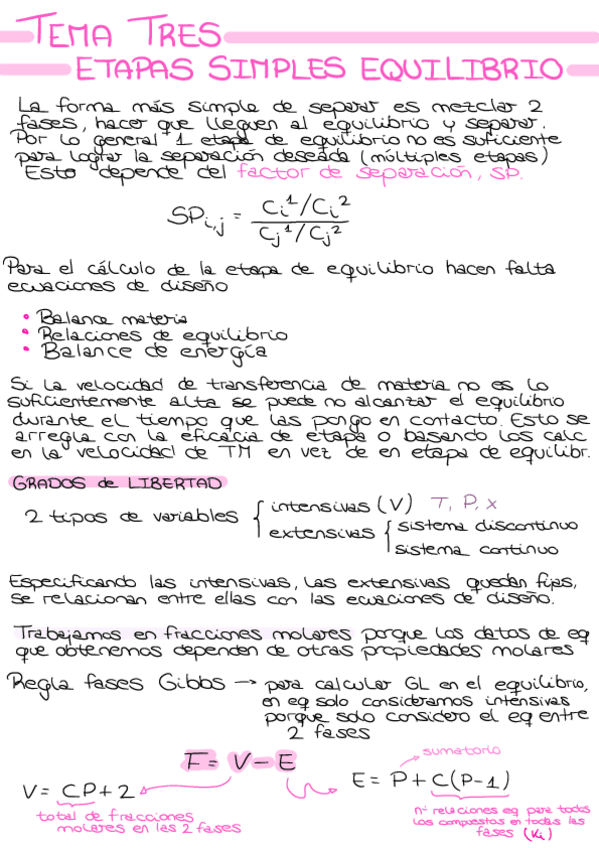 TEMA TRES
ETAPAS SIMPLES EQUILIBRIO
La forma más simple de separar es mezclar 2
fases, hacer que lleguen al equilibrio y separar.
Por lo general 1 etapa de equilibrio no es suficiente
para lograr la separación deseada (múltiples etapas)
Esto depende del factor de separación, SP.
SPi,j = Ci¹/Ci² / Cj¹/Cj²
Para el cálculo de la etapa de equilibrio hacen falta
ecuaciones de diseño
• Balance materia
• Relaciones de equilibrio
• Balance de energía
Si la velocidad de transferencia de materia no es lo
suficientemente alta se puede no alcanzar el equilibrio
durante el tiempo que las pongo en contacto. Esto se
arregla con la eficacia de etapa o basando los calc
en la velocidad de TM en vez de en etapa de equilibr.
GRADOS de LIBERTAD
2 tipos de variables { intensivas (V) T, P, x
extensivas { sistema discontinuo
sistema continuo
Especificando las intensivas, las extensivas quedan fijas,
se relacionan entre ellas con las ecuaciones de diseño.
Trabajamos en fracciones molares porque los datos de eq
que obtenemos dependen de otras propiedades molares
Regla fases Gibbs → para calcular GL en el equilibrio,
en eq solo consideramos intensivas
porque solo considero el eq entre
2 fases
F = V - E
sumatorio
V = CP + 2
E = P + C(P-1)
total de fracciones
molares en las 2 fases
nº relaciones eq para todos
los compuestos en todas las
fases (Ki)